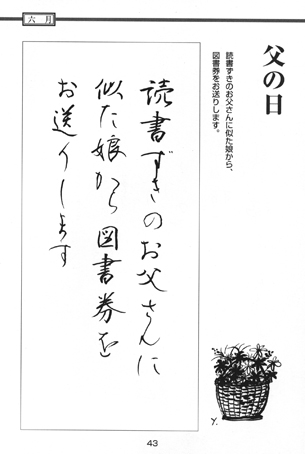 六月
父の日
読書ずきのお父さんに似た娘から、
図書券をお送りします。
読書ずきのお父さんに
似た娘から図書券を
お送りします
Y.
43